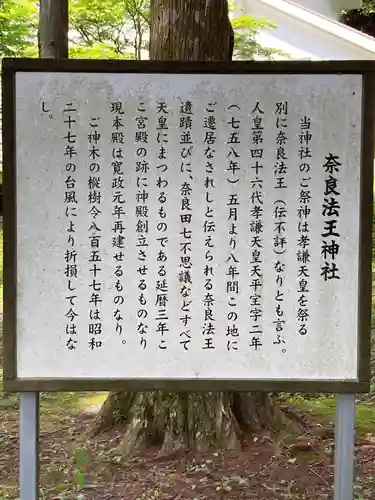 奈良法王神社
当神社のご祭神は孝謙天皇を祭る
別に奈良法王(伝不評)なりとも言ふ。
人皇第四十六代孝謙天皇天平宝字二年
(七五八年)五月より八年間この地に
ご遷居なされしと伝えられる奈良法王
遺蹟並びに、奈良田七不思議などすべて
天皇にまつわるものである延暦三年こ
こ宮殿の跡に神殿創立させるものなり
現本殿は寛政元年再建せるものなり。
ご神木の樅樹令八百五十七年は昭和
二十七年の台風により折損して今はな
し。